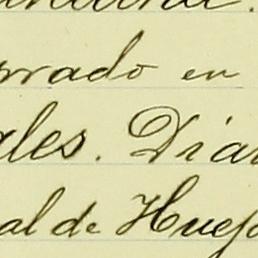 rrado en
ales. Diar
al de Hues